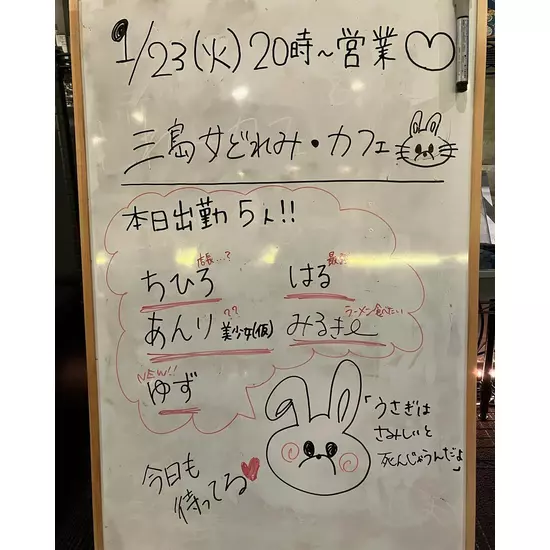 1/23(火)20時～営業♡
三島女どれみ・カフェ
本日出勤5人!!
店長…?
ちひろ
はる
??
あんり 美少女(仮)
ラーメン食べたい
みるきぃ
NEW!!
ゆず
今日も
待ってる♥
「うさぎは
さみしいと
死んじゃうんだよ」